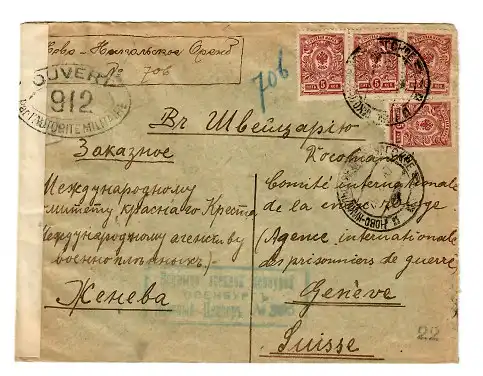 Ново - Никольское Оренб
№ 706
706
OUVERT
912
PAR L'AUTORITÉ MILITAIRE
Въ Швейцарію
Заказное
Recomand
Международному
комитету краснаго Креста
(Международному агенству
военноплѣнныхъ)
Женева
Comité internationale
de la croix rouge
(Agence internationale
des prisonniers de guerre)
Genève
Suisse
ОРЕНБУРГЪ
22